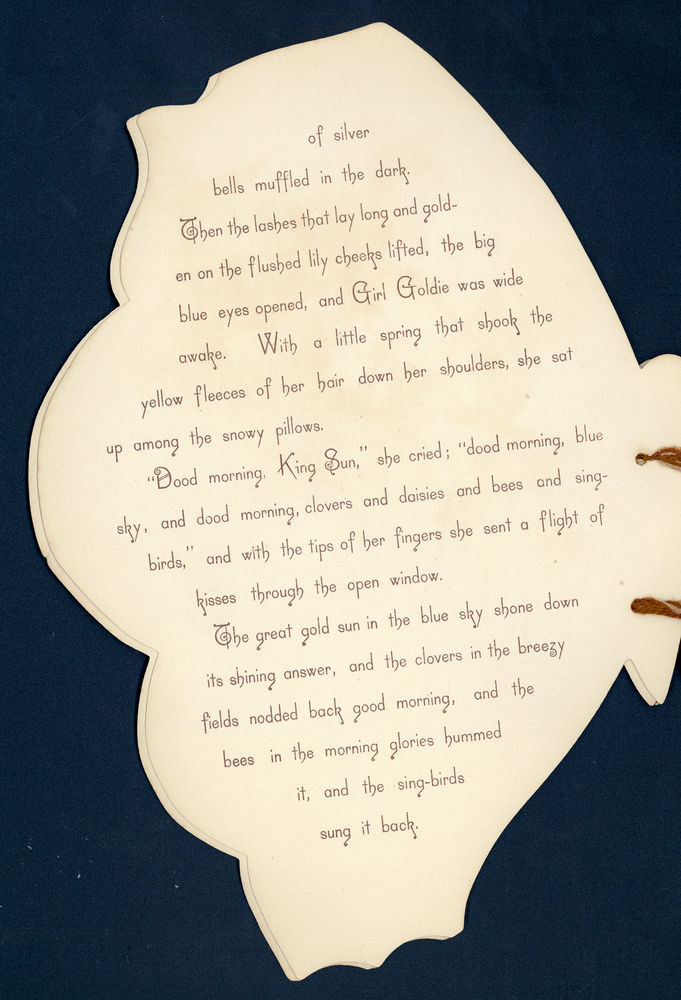 of silver
bells muffled in the dark.
Then the lashes that lay long and gold-
en on the flushed lily cheeks lifted, the big
blue eyes opened, and Girl Goldie was wide
awake. With a little spring that shook the
yellow fleeces of her hair down her shoulders, she sat
up among the snowy pillows.
"Dood morning, King Sun," she cried; "dood morning, blue
sky, and dood morning, clovers and daisies and bees and sing-
birds," and with the tips of her fingers she sent a flight of
kisses through the open window.
The great gold sun in the blue sky shone down
its shining answer, and the clovers in the breezy
fields nodded back good morning, and the
bees in the morning glories hummed
it, and the sing-birds
sung it back.